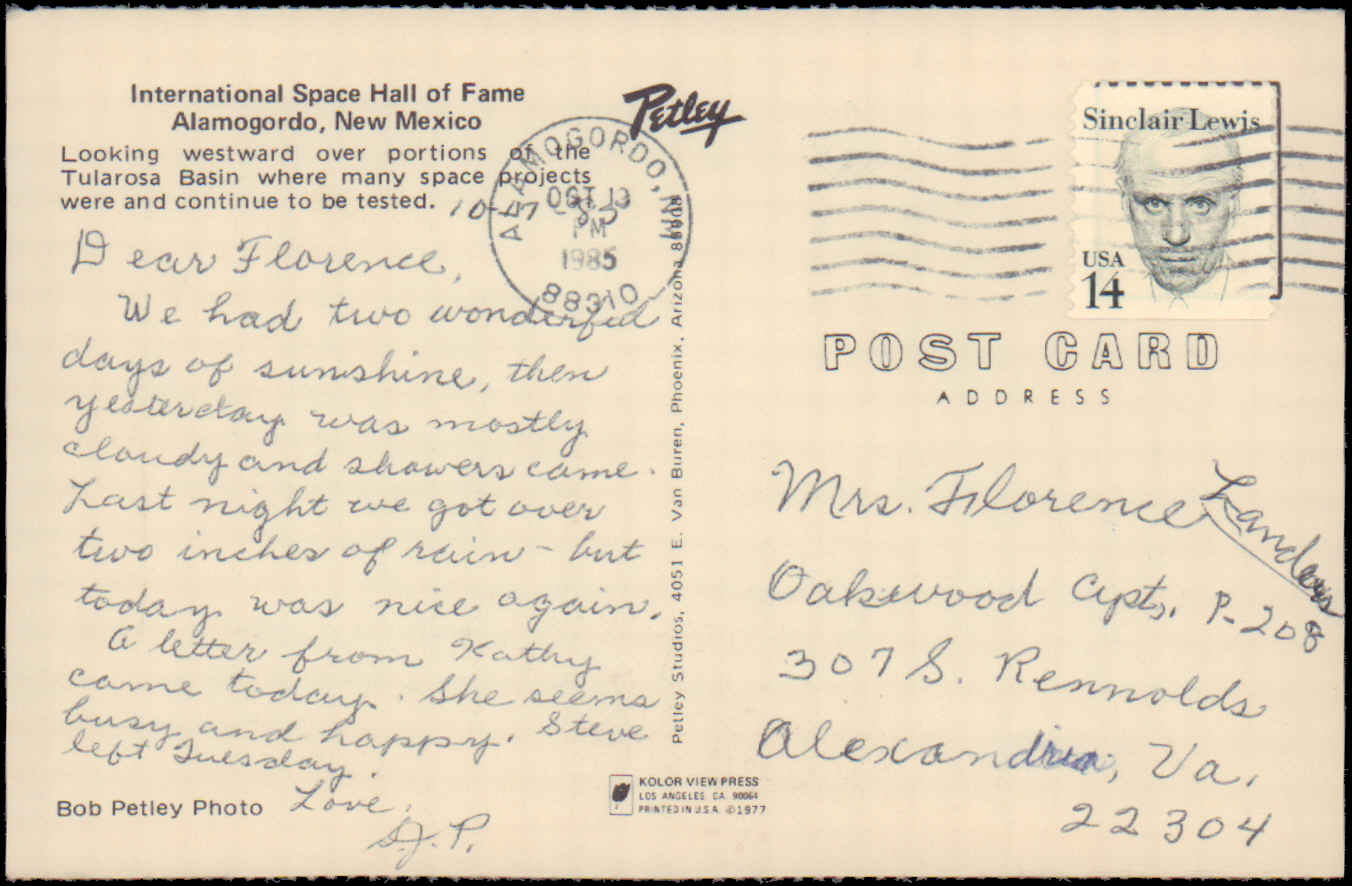 International Space Hall of Fame
Alamogordo, New Mexico
Looking westward over portions of the
Tularosa Basin where many space projects
were and continue to be tested.
Petley
ALAMOGORDO, NM
OCT 13
PM
1985
88310
Sinclair Lewis
USA
14
Dear Florence,
We had two wonderful
days of sunshine, then
yesterday was mostly
cloudy and showers came.
Last night we got over
two inches of rain - but
today was nice again.
A letter from Kathy
came today. She seems
busy and happy. Steve
left Tuesday.
Love,
Bob Petley Photo
Petley Studios, 4051 E. Van Buren, Phoenix, Arizona 85008
POST CARD
ADDRESS
Mrs. Florence Landers
Oakwood Apts. P-208
307 S. Rennolds
Alexandria, Va.
22304
KOLOR VIEW PRESS
LOS ANGELES CA. 90064
PRINTED IN U.S.A. ©1977